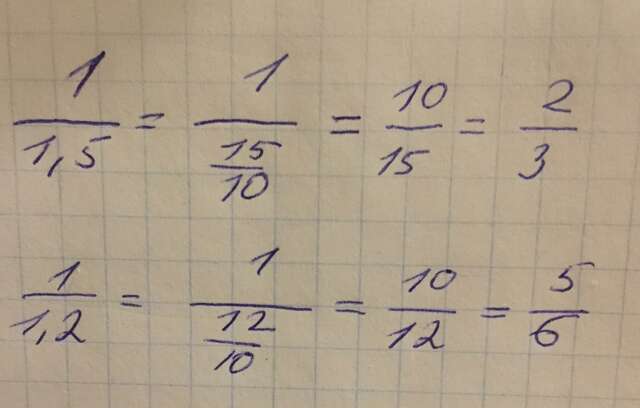 1/1,5 = 1/(15/10) = 10/15 = 2/3
1/1,2 = 1/(12/10) = 10/12 = 5/6